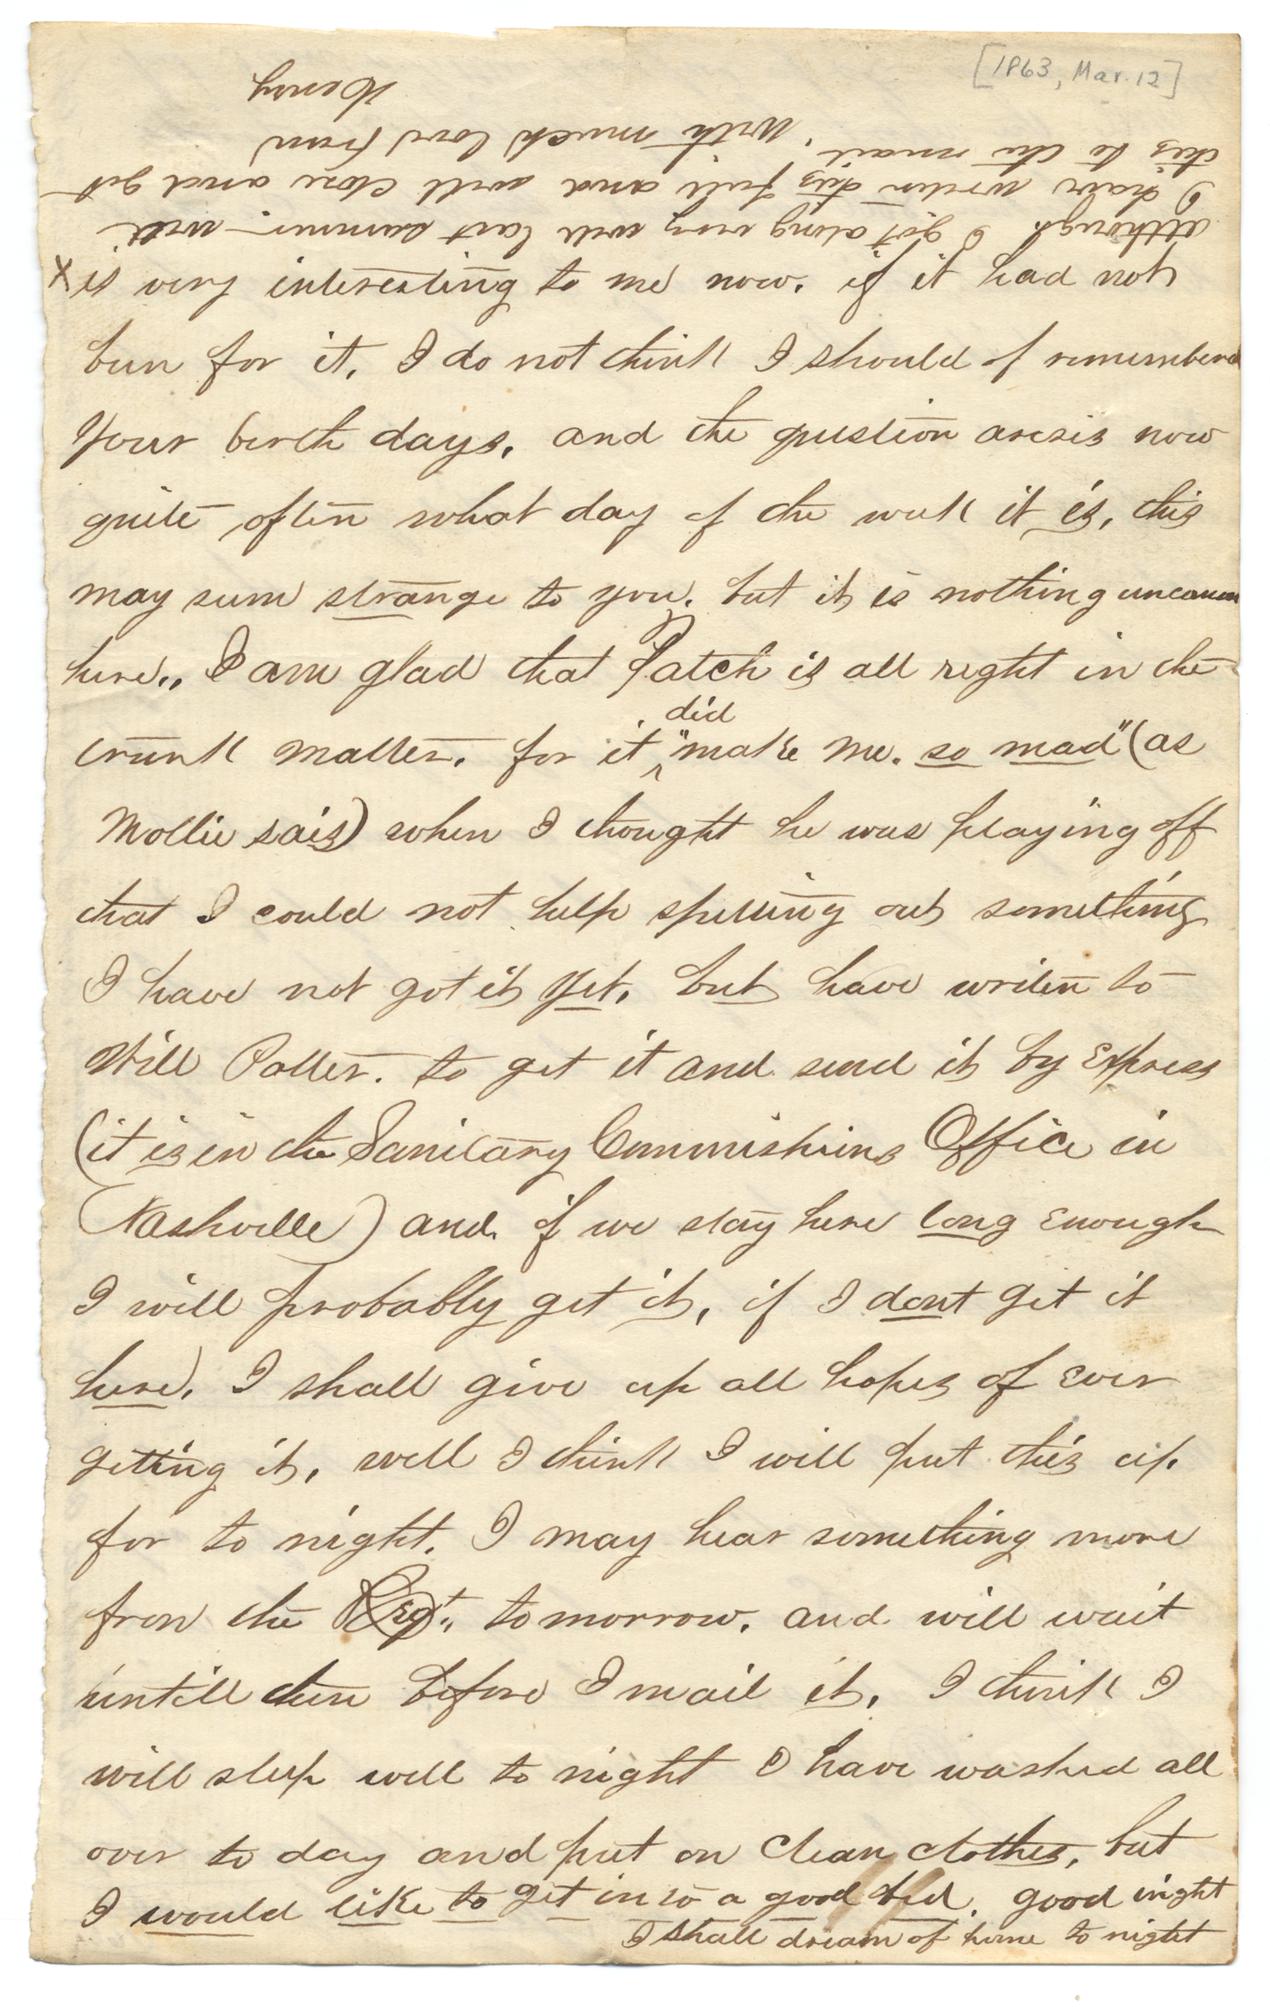 [1863, Mar. 12]
although I got along very well last summer. well
I have writen this full and will close and get
this to the mail. With much love from
Henry
x is very interesting to me now. if it had not
been for it, I do not think I should of remembered
Your birth days, and the question arisis now
quite often what day of the week it is, this
may seem strange to you, but it is nothing uncommon
here,, I am glad that Patch is all right in the
trunk matter. for it did "make me. so mad" (as
Mollie sais) when I thought he was playing off
that I could not help spilling out something
I have not got it yet, but have writen to
Will Potter. to get it and send it by Express
(it is in the Sanitary Commishions Office in
Nashville) and if we stay here long enough
I will probably get it, if I dont get it
here, I shall give up all hopes of ever
getting it, well I think I will put this up
for to night. I may hear something more
from the Regt., tomorrow. and will wait
untill then before I mail it, I think I
will sleep well to night I have washed all
over to day and put on clean clothes, but
I would like to get in to a good bed. good night
I shall dream of home to night